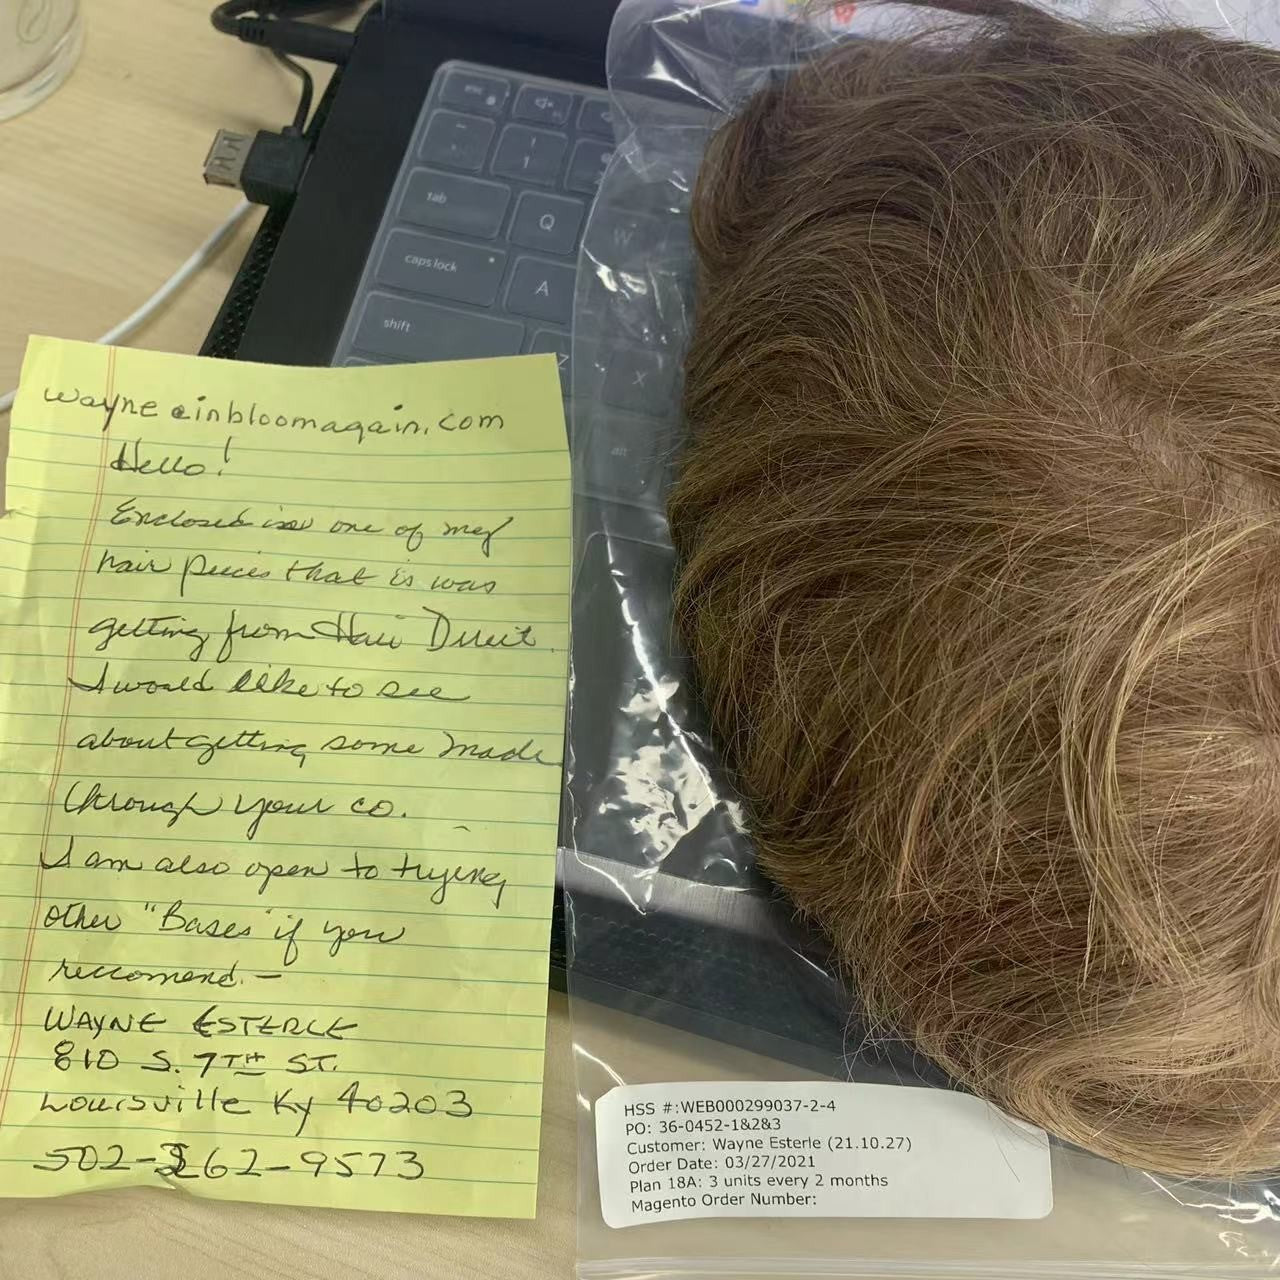 wayne@inbloomagain.com
Hello!
Enclosed is one of my
hair pieces that is was
getting from Hair Direct.
I would like to see
about getting some made
through your co.
I am also open to trying
other "Bases" if you
reccomend. —
WAYNE ESTERLE
810 S. 7TH ST.
Louisville Ky 40203
502-262-9573
HSS #:WEB000299037-2-4
PO: 36-0452-1&2&3
Customer: Wayne Esterle (21.10.27)
Order Date: 03/27/2021
Plan 18A: 3 units every 2 months
Magento Order Number:
esc
tab
Q
W
caps lock
A
shift
Z
X
alt